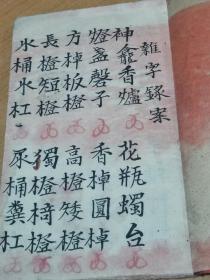 雜字録案
神龕香爐 花瓶蠋台
燈盞磬子 香棹圓棹
方棹板橙 高橙矮橙
長橙短橙 獨橙椅橙
水桶水杠 尿桶糞杠